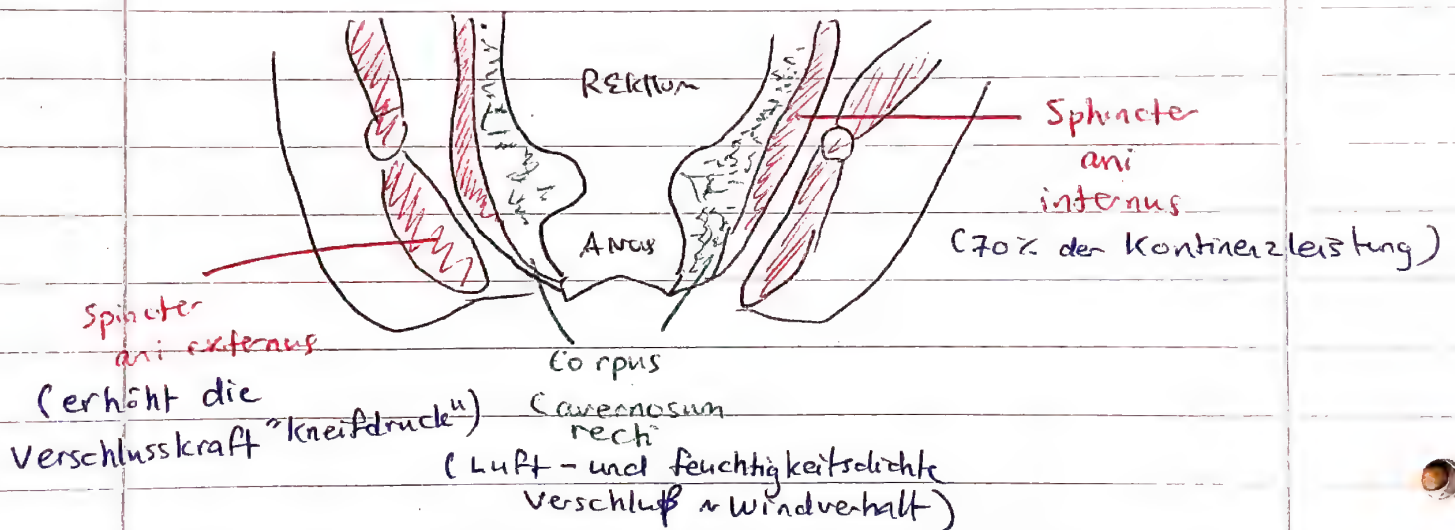 REKtum
Sphincter
ani
internus
(70% der Kontinenzleistung)
ANUS
Spincter
ani externus
(erhöht die
Verschlusskraft "Kneifdruck")
Corpus
Cavernosum
recti
(Luft- und feuchtigkeitsdichte
Verschluß ~ Windverhalt)